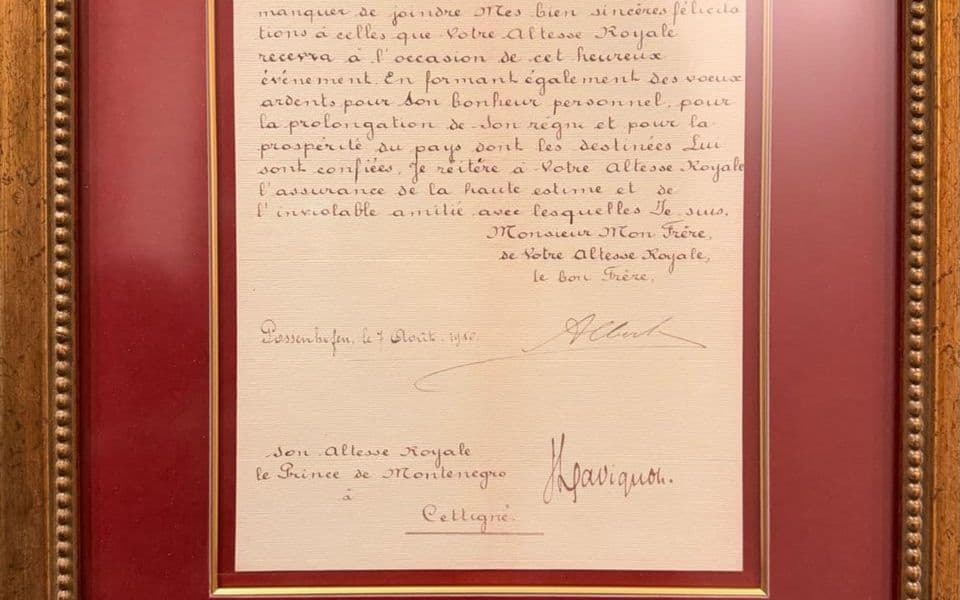 manquer de joindre Mes bien sincères félicita
tions à celles que Votre Altesse Royale
recevra à l'occasion de cet heureux
événement. En formant également des vœux
ardents pour Son bonheur personnel, pour
la prolongation de Son règne et pour la
prospérité du pays dont les destinées Lui
sont confiées, Je réitère à Votre Altesse Royale
l'assurance de la haute estime et de
l'inviolable amitié avec lesquelles Je suis,
Monsieur Mon Frère,
de Votre Altesse Royale,
le bon Frère,
Possenhofen, le 7 Août 1910.
Albert
Son Altesse Royale
le Prince de Montenegro
à
Cettigné.
Davignon.